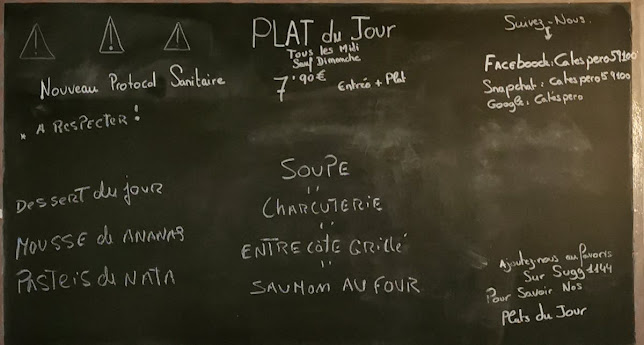 Nouveau Protocol Sanitaire
* A RESPECTER!
Dessert du jour
MOUSSE de ANANAS
PASTEIS de NATA
PLAT du Jour
Tous les Midi
Sauf Dimanche
7'90€
Entrée + Plat
SOUPE
CHARCUTERIE
ENTRECOTE Grillé
SAUMON AU FOUR
Suivez-Nous.
Facebook: Catespero59100
Snapchat: Catespero59100
Google: Catéspero
Ajoutez-nous au favoris
Sur Sugg1144
Pour Savoir Nos
Plats du Jour